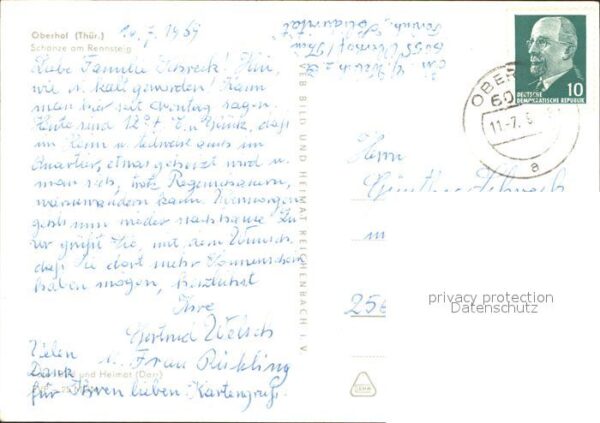 Oberhof (Thür.)
Schanze am Rennsteig
10.7.1969
Liebe Familie Schreck! Hui,
wie ist kalt geworden! Kann
man hier seit Montag sagen.
Heute sind 12° + C. u. Glück, daß
im Heim u. teilweise auch im
Quartier, etwas geheizt wird u.
man sich, trotz Regenschauern,
warmwandern kann. Übermorgen
geht's nun wieder nach Hause. Zu
vor grüßt Sie, mit dem Wunsch,
daß Sie dort mehr Sonnenschein
haben mögen, herzlichst
Ihre
Gertrud Welsch
u. Frau Rückling
Vielen
Dank
für Ihren lieben Kartengruß.
und Heimat (Darr)
VEB BILD UND HEIMAT REICHENBACH I. V.
DEUTSCHE
DEMOKRATISCHE REPUBLIK
10
OBER
60
11.-7.6
a
Herrn
Günther Schreck
256
privacy protection
Datenschutz